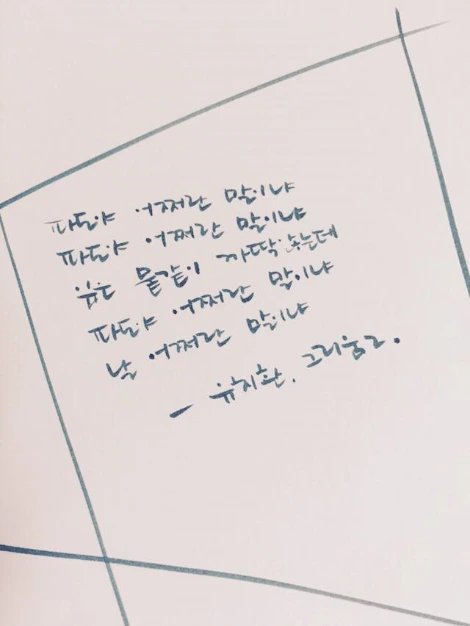 파도야 어쩌란 말이냐
파도야 어쩌란 말이냐
임은 뭍같이 까딱 않는데
파도야 어쩌란 말이냐
날 어쩌란 말이냐
- 유치환, 그리움2.